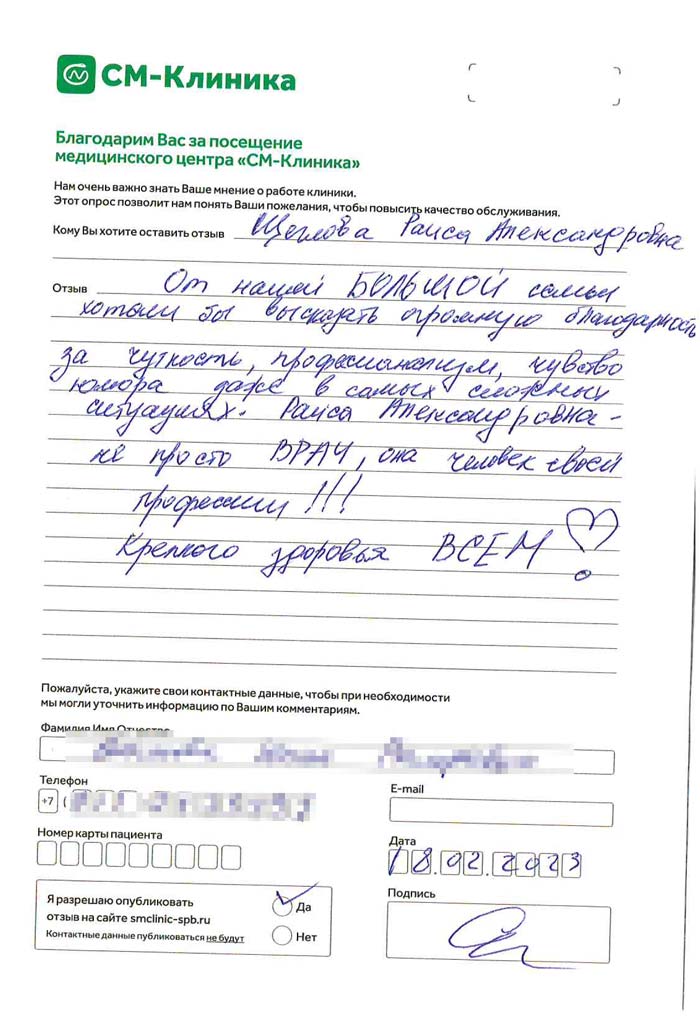 СМ-Клиника
Благодарим Вас за посещение
медицинского центра «СМ-Клиника»
Нам очень важно знать Ваше мнение о работе клиники.
Этот опрос позволит нам понять Ваши пожелания, чтобы повысить качество обслуживания.
Кому Вы хотите оставить отзыв Щеглова Раиса Александровна
Отзыв От нашей БОЛЬШОЙ семьи
хотели бы высказать огромную благодарность
за чуткость, професионализм, чувство
юмора даже в самых сложных
ситуациях. Раиса Александровна-
не просто ВРАЧ, она человек своей
профессии!!!
Крепкого здоровья ВСЕМ
Пожалуйста, укажите свои контактные данные, чтобы при необходимости
мы могли уточнить информацию по Вашим комментариям.
Фамилия Имя Отчество
Телефон
E-mail
+7 (
Номер карты пациента
Дата
18.02.2023
Я разрешаю опубликовать
отзыв на сайте smclinic-spb.ru
Контактные данные публиковаться не будут
Да
Нет
Подпись